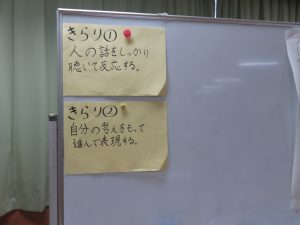 きらり①
人の話をしっかり
聴いて反応する。
きらり②
自分の考えをもって
進んで表現する。